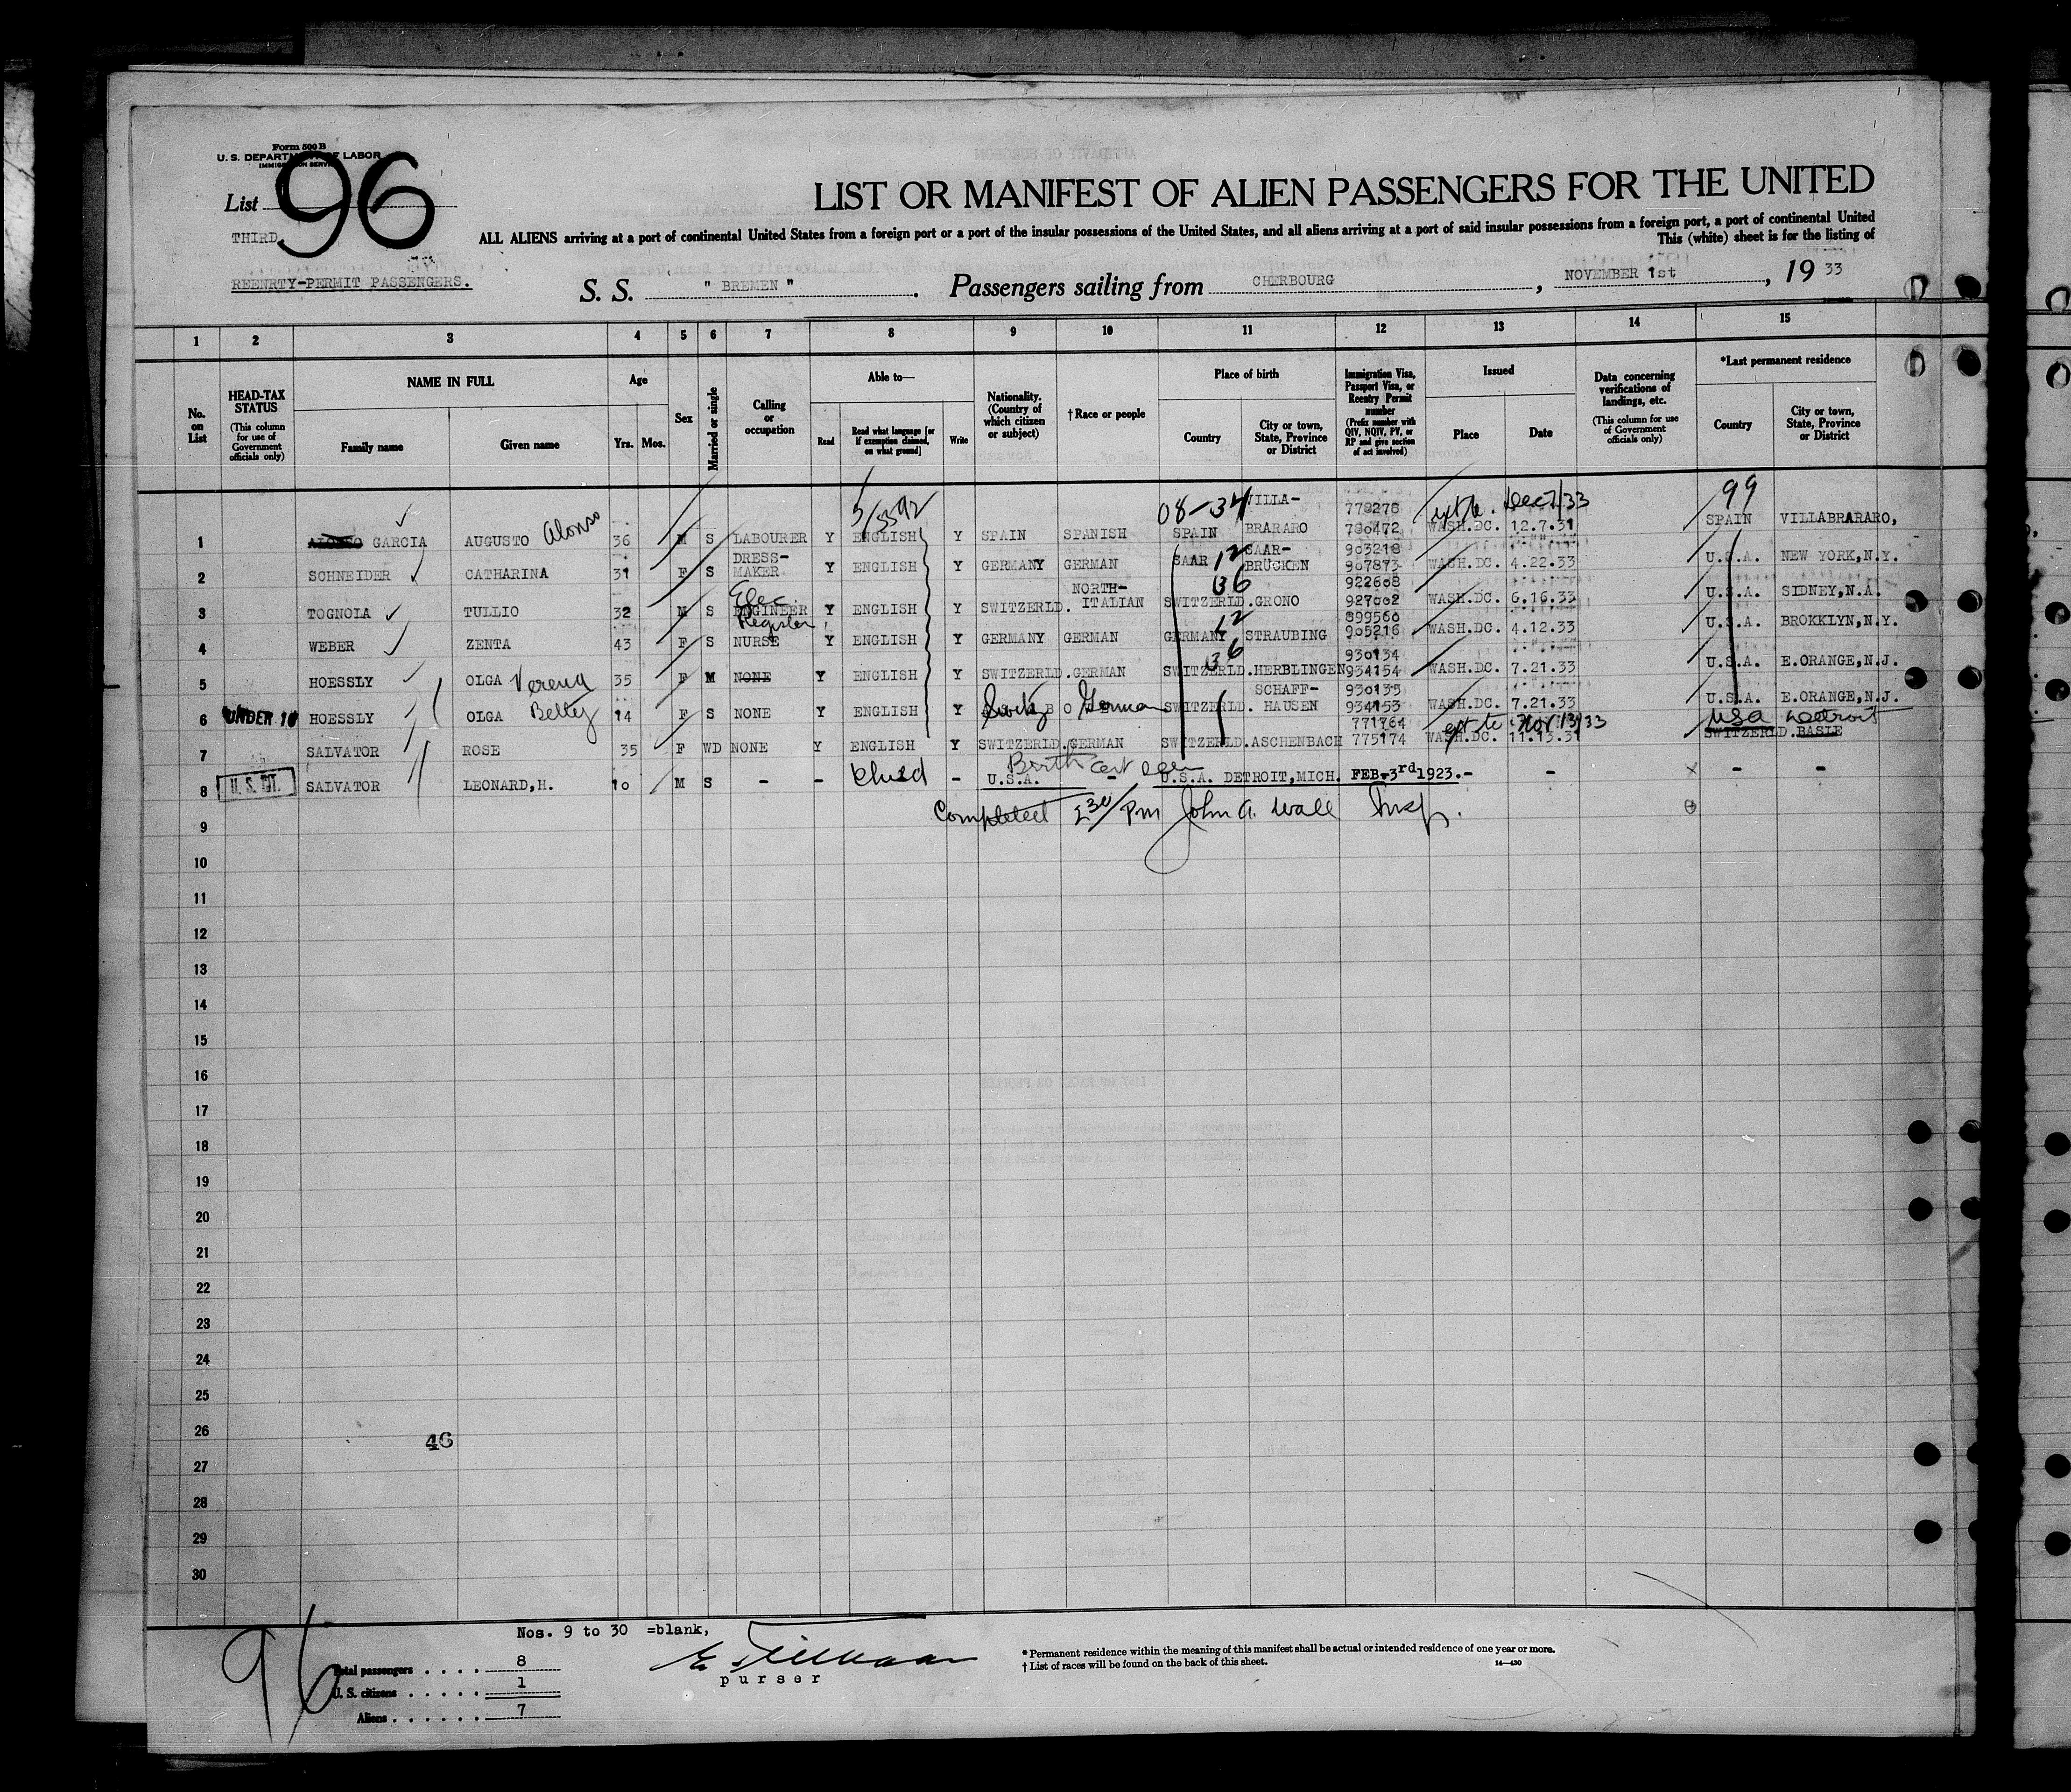 Form 500 B
U. S. DEPARTMENT OF LABOR
IMMIGRATION SERVICE
List 96
THIRD
REENRTY-PERMIT PASSENGERS.
LIST OR MANIFEST OF ALIEN PASSENGERS FOR THE UNITED
ALL ALIENS arriving at a port of continental United States from a foreign port or a port of the insular possessions of the United States, and all aliens arriving at a port of said insular possessions from a foreign port, a port of continental United
This (white) sheet is for the listing of
S. S. " BREMEN ". Passengers sailing from CHERBOURG, NOVEMBER 1st, 19 33
1 2 3 4 5 6 7 8 9 10 11 12 13 14 15
No. on List
HEAD-TAX STATUS (This column for use of Government officials only)
NAME IN FULL
Family name Given name
Age
Yrs. Mos.
Sex
Married or single
Calling or occupation
Able to—
Read Read what language [or if exemption claimed, on what ground] Write
Nationality. (Country of which citizen or subject)
† Race or people
Place of birth
Country City or town, State, Province or District
Immigration Visa, Passport Visa, or Reentry Permit number (Prefix number with QIV, NQIV, PV, or RP and give section of act involved)
Issued
Place Date
Data concerning verifications of landings, etc. (This column for use of Government officials only)
*Last permanent residence
Country City or town, State, Province or District
08-34 VILLA- 778278 Dec 7/33 99
1 ALONSO GARCIA AUGUSTO Alonso 36 M S LABOURER Y ENGLISH Y SPAIN SPANISH SPAIN BRARARO 780472 WASH.DC. 12.7.31 SPAIN VILLABRARARO,
DRESS- 12 SAAR- 903218
2 SCHNEIDER CATHARINA 31 F S MAKER Y ENGLISH Y GERMANY GERMAN SAAR BRÜCKEN 907873 WASH.DC. 4.22.33 U.S.A. NEW YORK,N.Y.
Elec. NORTH- 36 922608
3 TOGNOLA TULLIO 32 M S ENGINEER Y ENGLISH Y SWITZERLD. ITALIAN SWITZERLD.GRONO 927002 WASH.DC. 6.16.33 U.S.A. SIDNEY,N.A.
Register 12 899560
4 WEBER ZENTA 43 F S NURSE Y ENGLISH Y GERMANY GERMAN GERMANY STRAUBING 905216 WASH.DC. 4.12.33 U.S.A. BROKKLYN,N.Y.
36 930134
5 HOESSLY OLGA Verena 35 F M NONE Y ENGLISH Y SWITZERLD.GERMAN SWITZERLD.HERBLINGEN 934154 WASH.DC. 7.21.33 U.S.A. E.ORANGE,N.J.
SCHAFF- 930135
6 UNDER 16 HOESSLY OLGA Betty 14 F S NONE Y ENGLISH Y Switz German SWITZERLD. HAUSEN 934153 WASH.DC. 7.21.33 U.S.A. E.ORANGE,N.J.
771764 ext to Nov 13/33 USA Detroit
7 SALVATOR ROSE 35 F WD NONE Y ENGLISH Y SWITZERLD.GERMAN SWITZERLD.ASCHENBACH 775174 WASH.DC. 11.13.31 SWITZERLD.BASLE
Birth Cert seen
8 U. S. CIT. SALVATOR LEONARD,H. 10 M S - - Child - U.S.A. - U.S.A. DETROIT,MICH. FEB.3rd1923.- - - -
Completed 2 30/ Pm John A. Wall Insp.
9
10
11
12
13
14
15
16
17
18
19
20
21
22
23
24
25
26
46
27
28
29
30
96
Nos. 9 to 30 =blank,
Total passengers . . . . 8
U. S. citizens . . . . . 1
Aliens . . . . . . 7
purser
* Permanent residence within the meaning of this manifest shall be actual or intended residence of one year or more.
† List of races will be found on the back of this sheet.
14—430